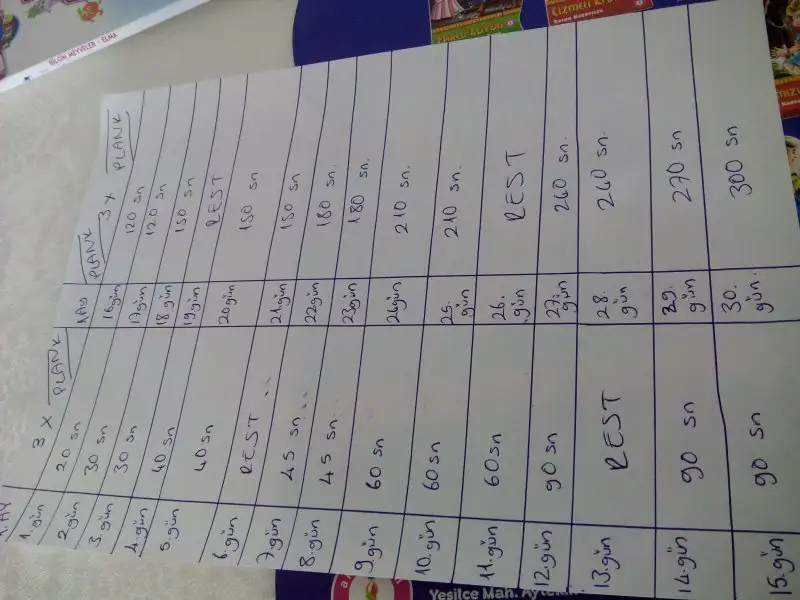 BİLGİN MEYVELER - ELMA
1.AY 3 X PLANK
1.gün 20 sn
2.gün 30 sn
3.gün 30 sn
4.gün 40 sn
5.gün 40 sn
6.gün REST
7.gün 45 sn
8.gün 45 sn
9.gün 60 sn
10.gün 60 sn
11.gün 60 sn
12.gün 90 sn
13.gün REST
14.gün 90 sn
15.gün 90 sn
1.AY PLANK 3 X PLANK
16.gün 120 sn
17.gün 120 sn
18.gün 150 sn
19.gün REST
20.gün 150 sn
21.gün 150 sn
22.gün 180 sn.
23.gün 180 sn.
24.gün 210 sn.
25. gün 210 sn.
26. gün REST
27. gün 240 sn.
28. gün 240 sn.
29. gün 270 sn
30. gün. 300 sn
Yesilce Mah.